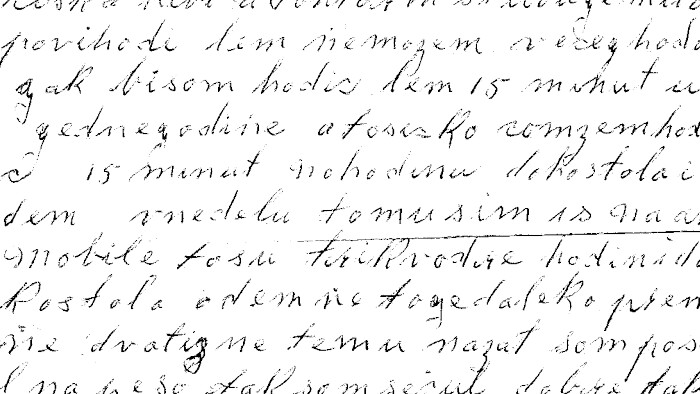 povihode lem nemozem vežeghodi
gak bisom hodic lem 15 minut u
gednegodine a tosizko somzemhod
c 15 minut nohodinu dokostola i
dem vnedelu tomusim is na a
mobile tosu trikvodre hodini d
Kostola odem ne togedaleko pren
ne dvatizne temu nazat som pos
l na peso tak som sešul dobre tak